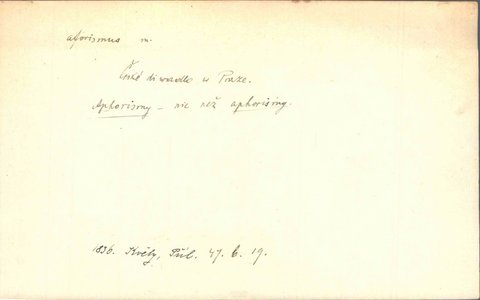 aforismus m.
České diwadlo w Praze.
Aphorismy – nic než aphorismy.
1836. Květy, Příl. 47. b. 19.